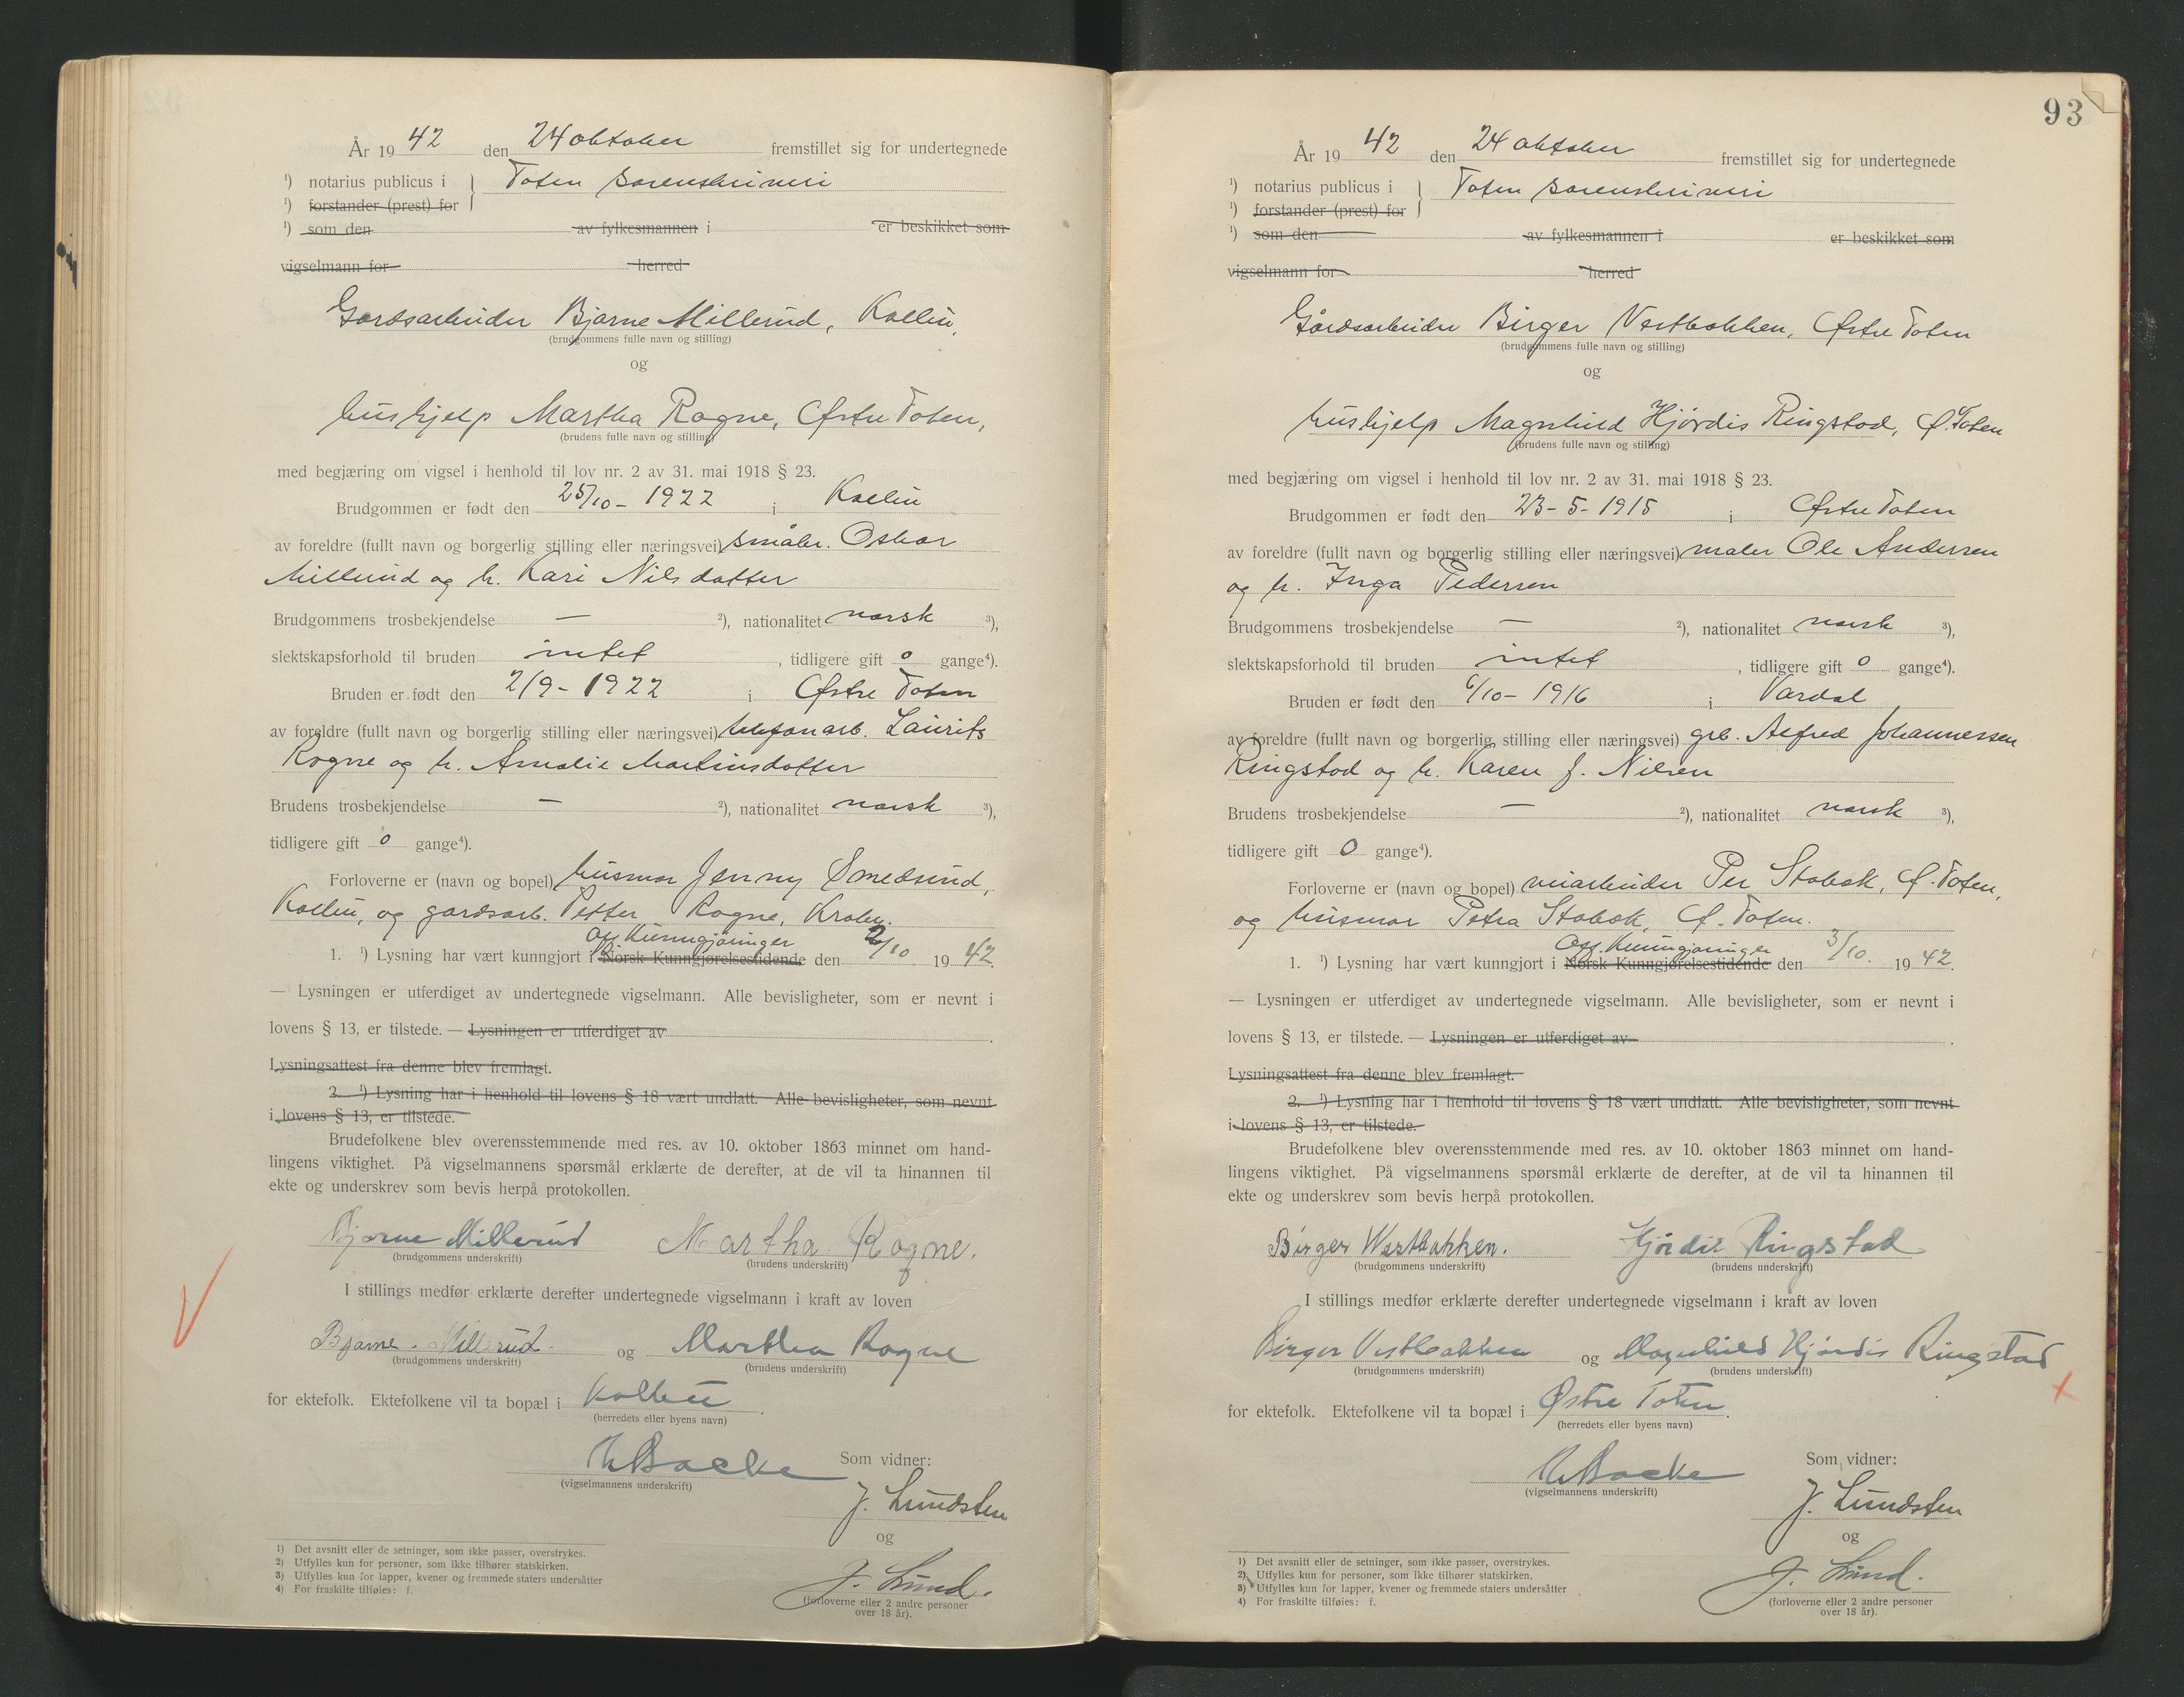 År 19 42 den 24 oktober fremstillet sig for undertegnede
¹) notarius publicus i } Toten sorenskriveri
¹) forstander (prest) for
¹) som den av fylkesmannen i er beskikket som
vigselmann for herred
Gårdsarbeider Bjarne Millerud, Kolbu,
(brudgommens fulle navn og stilling)
og
hushjelp Martha Rogne, Østre Toten,
(brudens fulle navn og stilling)
med begjæring om vigsel i henhold til lov nr. 2 av 31. mai 1918 § 23.
Brudgommen er født den 25/10 - 1922 i Kolbu
av foreldre (fullt navn og borgerlig stilling eller næringsvei) småbr. Oskar
Millerud og h. Kari Nilsdatter
Brudgommens trosbekjendelse — ²), nationalitet norsk ³),
slektskapsforhold til bruden intet , tidligere gift 0 gange⁴).
Bruden er født den 2/9 - 1922 i Østre Toten
av foreldre (fullt navn og borgerlig stilling eller næringsvei) telefonarb. Laurits
Rogne og h. Amalie Martinsdatter
Brudens trosbekjendelse — ²), nationalitet norsk ³),
tidligere gift 0 gange⁴).
Forloverne er (navn og bopel) husmor Jenny Smedsrud,
Kolbu, og gardsarb. Petter Rogne, Kraby.
Off. Kunngjøringer
1. ¹) Lysning har vært kunngjort i Norsk Kunngjørelsestidende den 2/10 19 42.
— Lysningen er utferdiget av undertegnede vigselmann. Alle bevisligheter, som er nevnt i
lovens § 13, er tilstede. — Lysningen er utferdiget av .
Lysningsattest fra denne blev fremlagt.
2. ¹) Lysning har i henhold til lovens § 18 vært undlatt. Alle bevisligheter, som nevnt
i lovens § 13, er tilstede.
Brudefolkene blev overensstemmende med res. av 10. oktober 1863 minnet om hand-
lingens viktighet. På vigselmannens spørsmål erklærte de derefter, at de vil ta hinannen til
ekte og underskrev som bevis herpå protokollen.
Bjarne Millerud Martha Rogne.
(brudgommens underskrift) (brudens underskrift)
I stillings medfør erklærte derefter undertegnede vigselmann i kraft av loven
Bjarne Millerud og Martha Rogne
(brudgommens underskrift) (brudens underskrift)
for ektefolk. Ektefolkene vil ta bopæl i Kolbu .
(herredets eller byens navn)
Backe Som vidner:
(vigselmannens underskrift)
J. Lundsten
og
J. Lund.
(forloverne eller 2 andre personer
over 18 år).
1) Det avsnitt eller de setninger, som ikke passer, overstrykes.
2) Utfylles kun for personer, som ikke tilhører statskirken.
3) Utfylles kun for lapper, kvener og fremmede staters undersåtter
4) For fraskilte tilføies: f.
93
År 19 42 den 24 oktober fremstillet sig for undertegnede
¹) notarius publicus i } Toten sorenskriveri
¹) forstander (prest) for
¹) som den av fylkesmannen i er beskikket som
vigselmann for herred
Gårdsarbeider Birger Vestbakken, Østre Toten
(brudgommens fulle navn og stilling)
og
hushjelp Magnhild Hjørdis Ringstad, Ø. Toten
(brudens fulle navn og stilling)
med begjæring om vigsel i henhold til lov nr. 2 av 31. mai 1918 § 23.
Brudgommen er født den 23-5-1915 i Østre Toten
av foreldre (fullt navn og borgerlig stilling eller næringsvei) maler Ole Andersen
og h. Inga Pedersen
Brudgommens trosbekjendelse — ²), nationalitet norsk ³),
slektskapsforhold til bruden intet , tidligere gift 0 gange⁴).
Bruden er født den 6/10 - 1916 i Vardal
av foreldre (fullt navn og borgerlig stilling eller næringsvei) grb. Alfred Johannessen
Ringstad og h. Karen J. Nilsen
Brudens trosbekjendelse — ²), nationalitet norsk ³),
tidligere gift 0 gange⁴).
Forloverne er (navn og bopel) veiarbeider Per Stabak, Ø. Toten,
og husmor Petra Stabak, Ø. Toten.
Off. Kunngjøringer
1. ¹) Lysning har vært kunngjort i Norsk Kunngjørelsestidende den 3/10. 19 42.
— Lysningen er utferdiget av undertegnede vigselmann. Alle bevisligheter, som er nevnt i
lovens § 13, er tilstede. — Lysningen er utferdiget av .
Lysningsattest fra denne blev fremlagt.
2. ¹) Lysning har i henhold til lovens § 18 vært undlatt. Alle bevisligheter, som nevnt
i lovens § 13, er tilstede.
Brudefolkene blev overensstemmende med res. av 10. oktober 1863 minnet om hand-
lingens viktighet. På vigselmannens spørsmål erklærte de derefter, at de vil ta hinannen til
ekte og underskrev som bevis herpå protokollen.
Birger Westbakken. Hjørdis Ringstad
(brudgommens underskrift) (brudens underskrift)
I stillings medfør erklærte derefter undertegnede vigselmann i kraft av loven
Birger Vestbakken og Magnhild Hjørdis Ringstad
(brudgommens underskrift) (brudens underskrift)
for ektefolk. Ektefolkene vil ta bopæl i Østre Toten.
(herredets eller byens navn)
Backe Som vidner:
(vigselmannens underskrift)
J. Lundsten
og
J. Lund.
(forloverne eller 2 andre personer
over 18 år).
1) Det avsnitt eller de setninger, som ikke passer, overstrykes.
2) Utfylles kun for personer, som ikke tilhører statskirken.
3) Utfylles kun for lapper, kvener og fremmede staters undersåtter
4) For fraskilte tilføies: f.